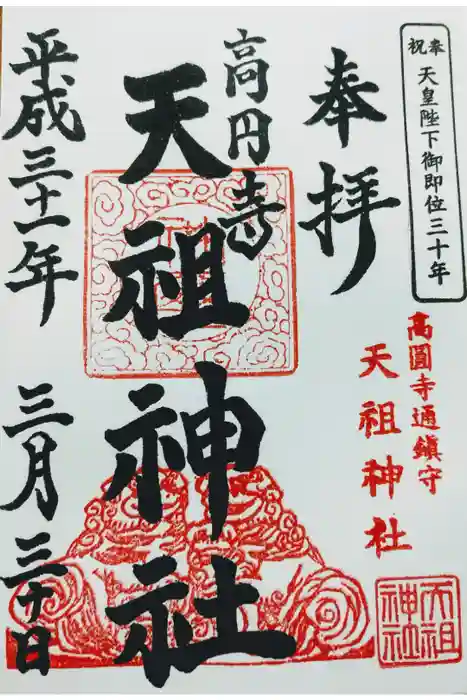 奉祝 天皇陛下御即位三十年
奉拝
高圓寺通鎮守
天祖神社
天祖
神社
高円寺
天祖神社
平成三十一年 三月三十日